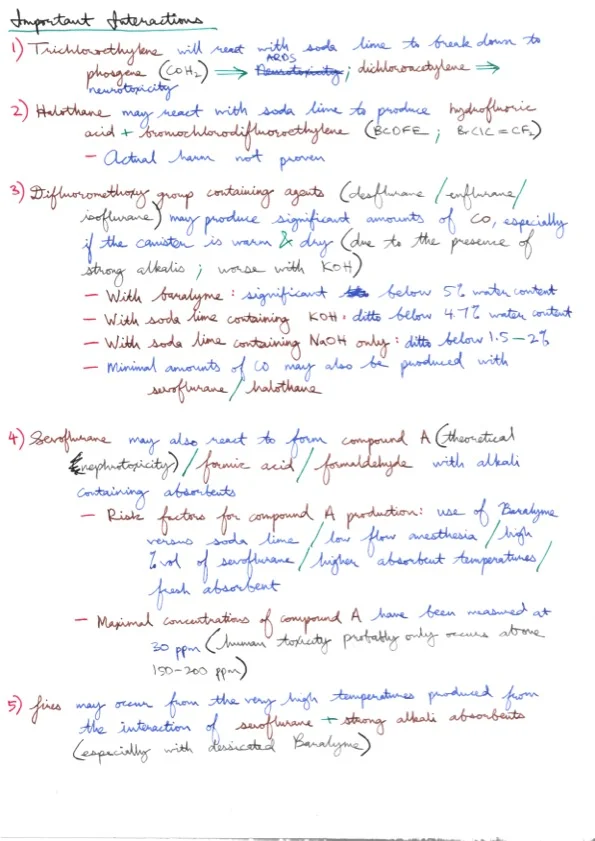 Important Interactions
1) Trichloroethylene will react with soda lime to break down to
phosgene (COH₂) ⇒ ARDS ~~Neurotoxicity~~; dichloroacetylene ⇒
neurotoxicity
2) Halothane may react with soda lime to produce hydrofluoric
acid + bromochlorodifluoroethylene (BCDFE; BrClC=CF₂)
– Actual harm not proven
3) Difluoromethoxy group containing agents (desflurane/enflurane/
isoflurane) may produce significant amounts of CO, especially
if the canister is warm & dry (due to the presence of
strong alkalis; worse with KOH)
– With baralyme: significant below 5% water content
– With soda lime containing KOH: ditto below 4.7% water content
– With soda lime containing NaOH only: ditto below 1.5–2%
– Minimal amounts of CO may also be produced with
sevoflurane/halothane
4) Sevoflurane may also react to form compound A (theoretical
nephrotoxicity)/formic acid/formaldehyde with alkali
containing absorbents
– Risk factors for compound A production: use of Baralyme
versus soda lime/low flow anesthesia/high
% vol of sevoflurane/higher absorbent temperatures/
fresh absorbent
– Maximal concentrations of compound A have been measured at
30 ppm (human toxicity probably only occurs above
150–200 ppm)
5) fires may occur from the very high temperatures produced from
the interaction of sevoflurane + strong alkali absorbents
(especially with dessicated Baralyme)